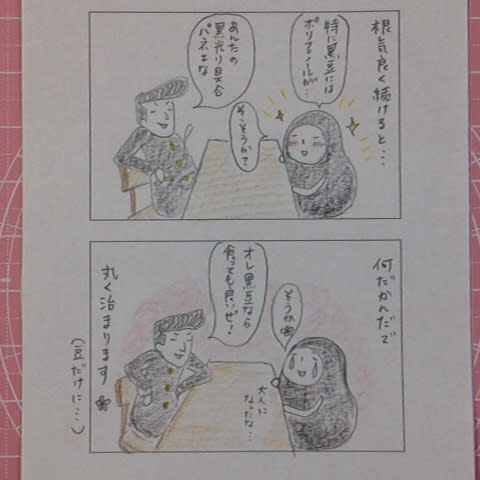 根気良く続けると…
特に黒豆には
ポリフェノールが…
そ、そうかて
あんたの
黒光り具合
パネエな
何だかんだで
そうか
大人に
なったな…
オレ黒豆なら
食っても良いぜ!
丸く治まります
(豆だけに…)